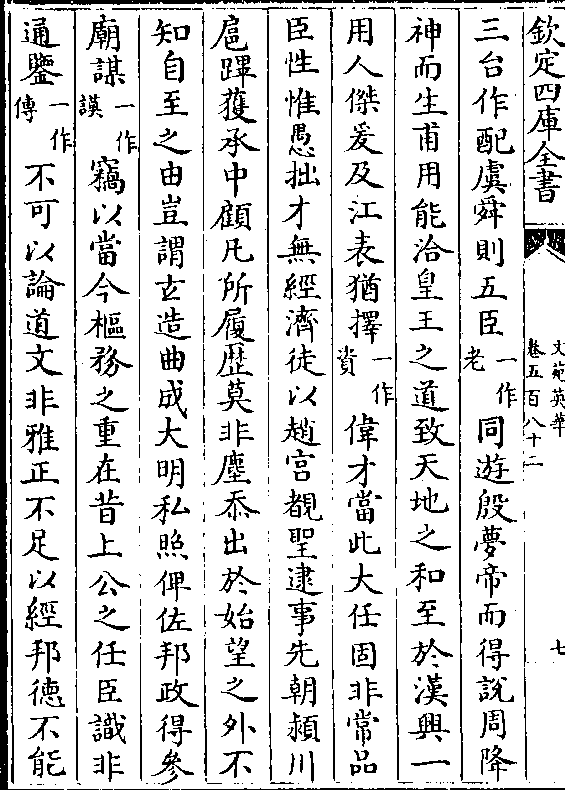 欽定四庫全書
文苑英華
卷五百八十二
七
三台作配虞舜則五臣一作老同遊殷夢帝而得說周降
神而生甫用能洽皇王之道致天地之和至於漢興一
用人傑爰及江表猶擇一作資偉才當此大任固非常品
臣性惟愚拙才無經濟徒以趙宫覩聖逮事先朝潁川
扈蹕獲承中顧凡所履歴莫非塵忝出於始望之外不
知自至之由豈謂玄造曲成大明私照俾佐邦政得參
廟謀一作謨竊以當今樞務之重在昔上公之任臣識非
通鑒一作傳不可以論道文非雅正不足以經邦德不能